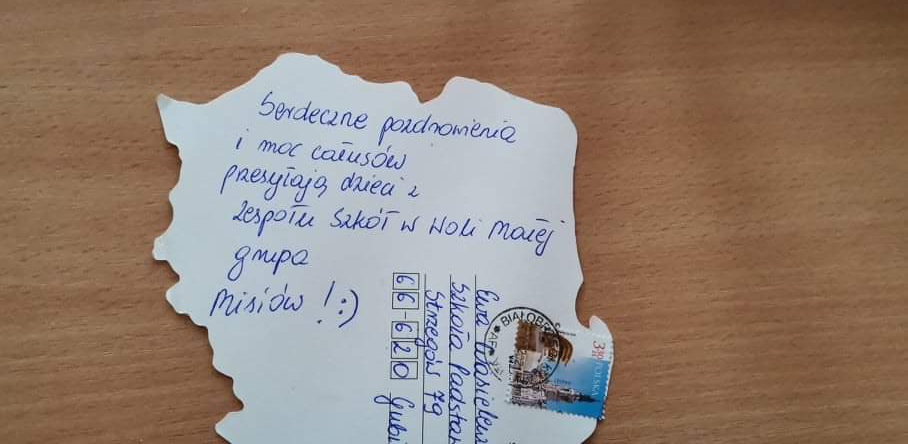 Serdeczne pozdrowienia
i moc całusów
przesyłają dzieci z
Zespołu Szkół w Woli Małej
grupa
Misiów ! :)
Ewa
Szkoła Podsta
Strzegów 79
66-620
POLSKA